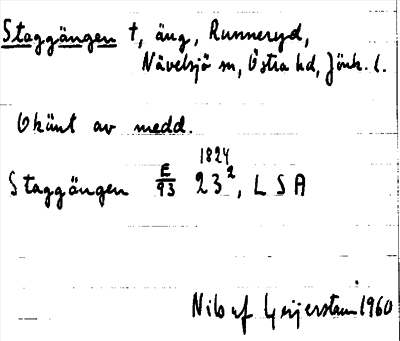 Staggängen †, äng, Runneryd,
Nävelsjö sn, Östra hd, Jönk. l.
Okänt av medd.
1824
Staggängen E/93 23², LSA
Nils af Geijerstam 1960